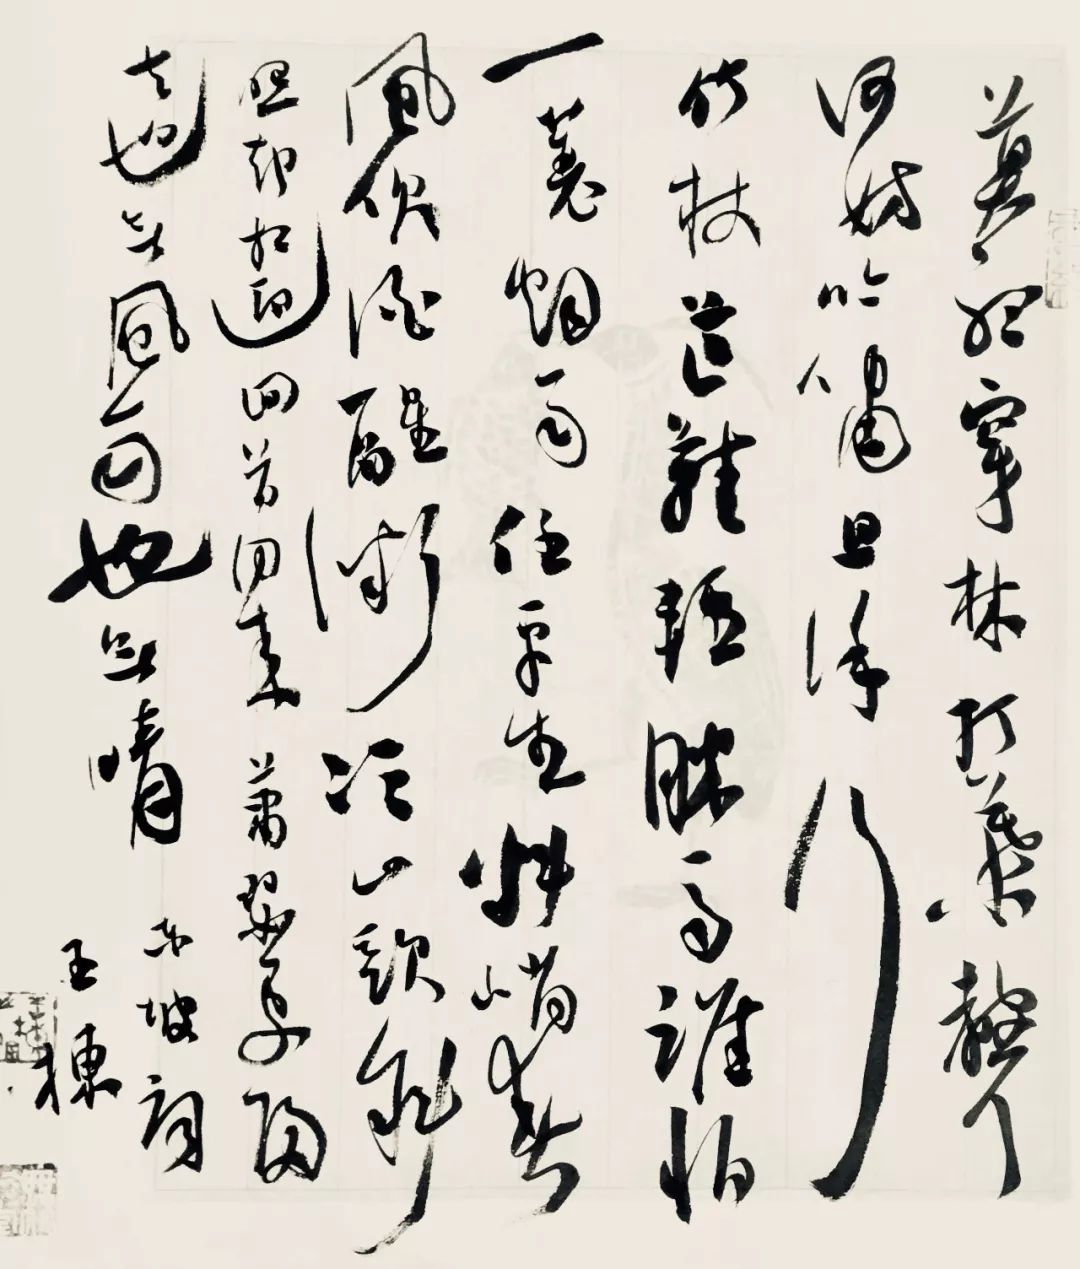 莫聽穿林打葉聲
何妨吟嘯且徐行
竹杖芒鞋輕勝馬誰怕
一蓑烟雨任平生料峭春
風吹酒醒微冷山頭斜
照却相迎回首向来蕭瑟處歸
去也無風雨也無晴 東坡詞
王棟